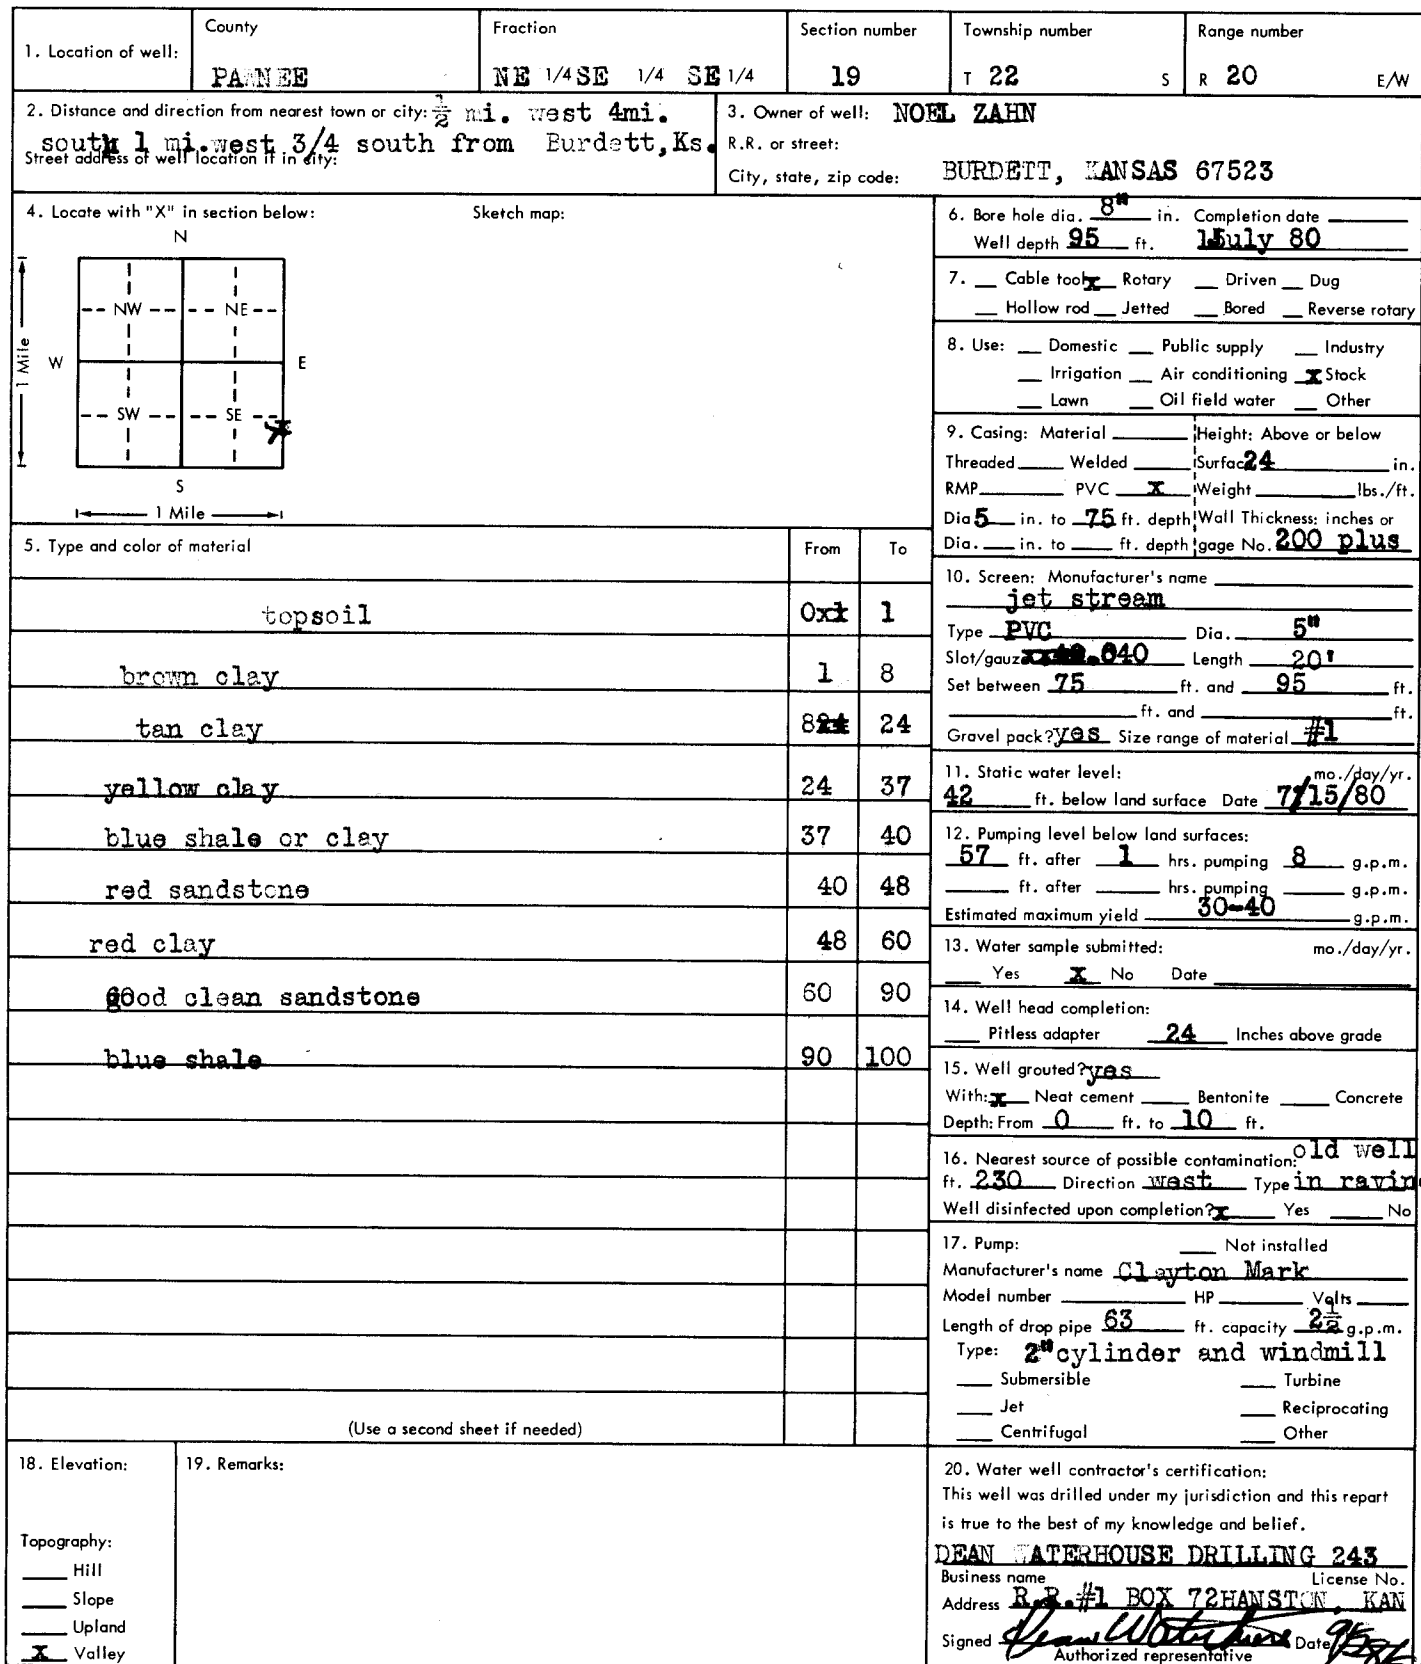 1. Location of well: County PAWNEE Fraction NE 1/4 SE 1/4 SE 1/4 Section number 19 Township number T 22 S Range number R 20 E/W
2. Distance and direction from nearest town or city: 1/2 mi. west 4mi.
south 1 mi.west 3/4 south from Burdett,Ks.
Street address of well location if in city:
3. Owner of well: NOEL ZAHN
R.R. or street:
City, state, zip code: BURDETT, KANSAS 67523
4. Locate with "X" in section below: Sketch map:
N
NW NE
1 Mile W E
SW SE X
S
1 Mile
5. Type and color of material From To
topsoil 0xx 1
brown clay 1 8
tan clay 8 24
yellow clay 24 37
blue shale or clay 37 40
red sandstone 40 48
red clay 48 60
good clean sandstone 60 90
blue shale 90 100
(Use a second sheet if needed)
6. Bore hole dia. 8" in. Completion date
Well depth 95 ft. 15July 80
7. Cable tool X Rotary Driven Dug
Hollow rod Jetted Bored Reverse rotary
8. Use: Domestic Public supply Industry
Irrigation Air conditioning X Stock
Lawn Oil field water Other
9. Casing: Material Height: Above or below
Threaded Welded Surface 24 in.
RMP PVC X Weight lbs./ft.
Dia 5 in. to 75 ft. depth Wall Thickness: inches or
Dia. in. to ft. depth gage No. 200 plus
10. Screen: Manufacturer's name
jet stream
Type PVC Dia. 5"
Slot/gauz .040 Length 20'
Set between 75 ft. and 95 ft.
ft. and ft.
Gravel pack? yes Size range of material #1
11. Static water level: mo./day/yr.
42 ft. below land surface Date 7/15/80
12. Pumping level below land surfaces:
57 ft. after 1 hrs. pumping 8 g.p.m.
ft. after hrs. pumping g.p.m.
Estimated maximum yield 30-40 g.p.m.
13. Water sample submitted: mo./day/yr.
Yes X No Date
14. Well head completion:
Pitless adapter 24 Inches above grade
15. Well grouted? yes
With: X Neat cement Bentonite Concrete
Depth: From 0 ft. to 10 ft.
16. Nearest source of possible contamination: old well
ft. 230 Direction west Type in ravin
Well disinfected upon completion? X Yes No
17. Pump: Not installed
Manufacturer's name Clayton Mark
Model number HP Volts
Length of drop pipe 63 ft. capacity 2 1/2 g.p.m.
Type: 2"cylinder and windmill
Submersible Turbine
Jet Reciprocating
Centrifugal Other
18. Elevation:
Topography:
Hill
Slope
Upland
X Valley
19. Remarks:
20. Water well contractor's certification:
This well was drilled under my jurisdiction and this repart
is true to the best of my knowledge and belief.
DEAN WATERHOUSE DRILLING 243
Business name License No.
Address R.R.#1 BOX 72HANSTON, KAN
Signed Dean Waterhouse Date
Authorized representative